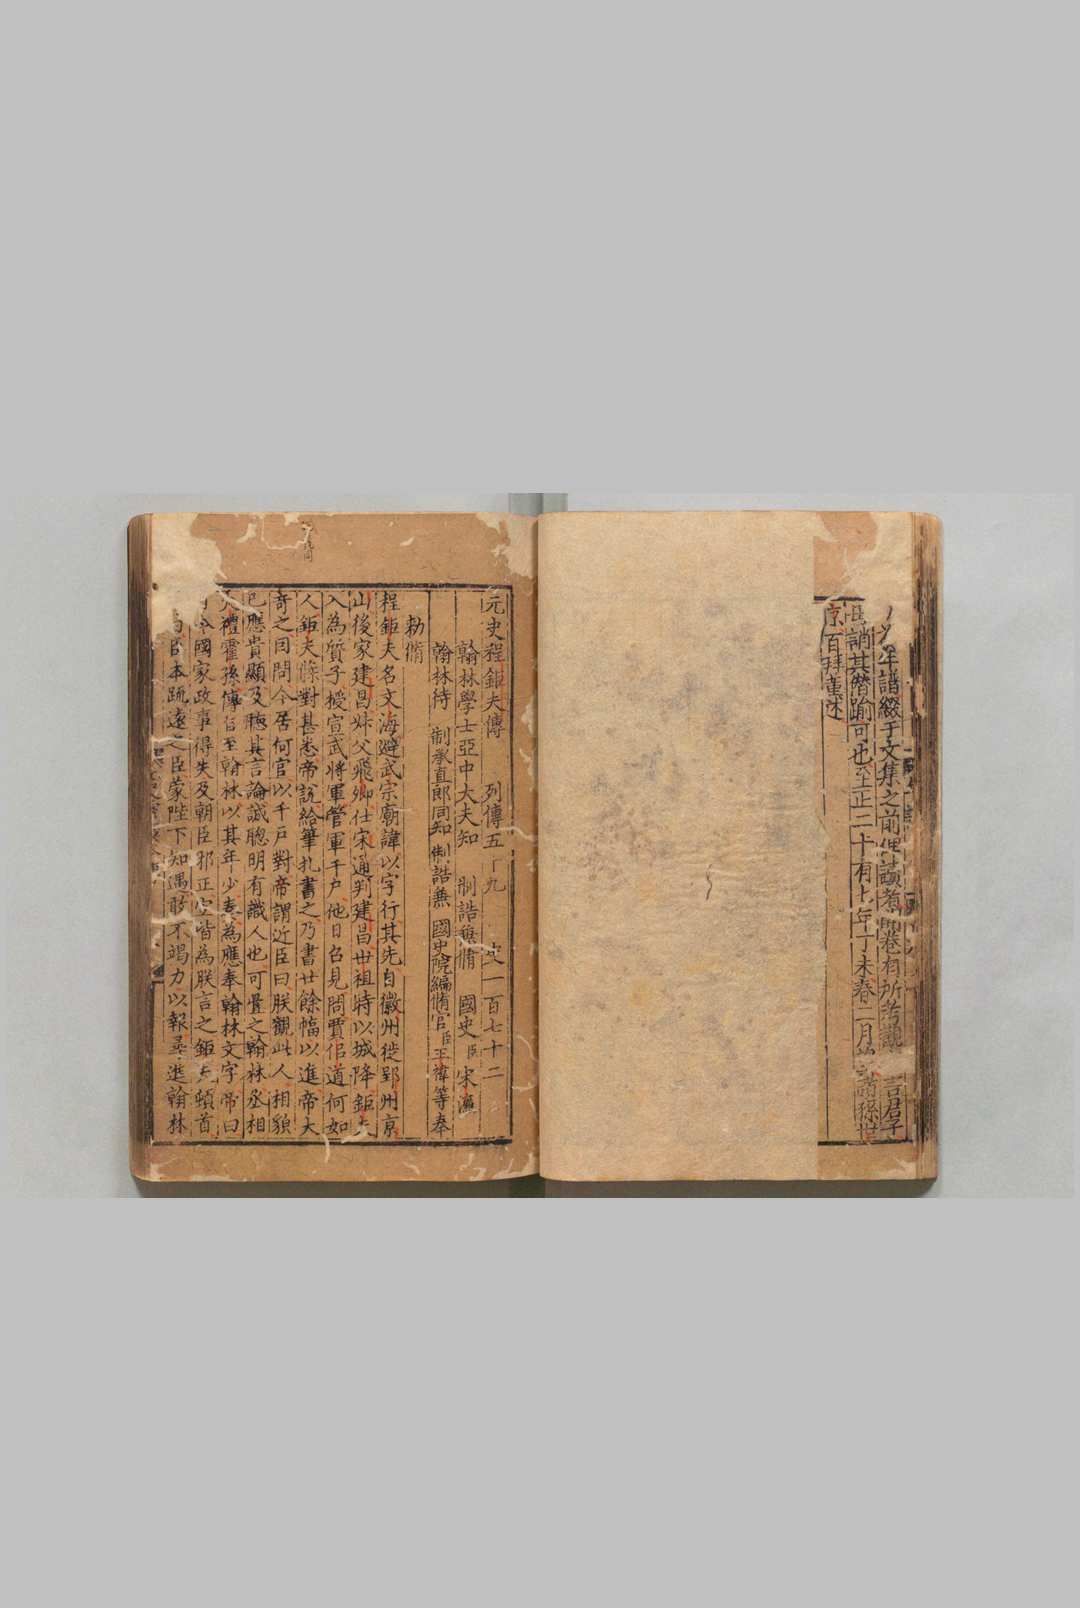 年譜綴于文集之前俾讀者開卷有所考觀 言君子
毋誚其僭踰可也至正二十有七年丁未春二月 諸孫世
京百拜謹述
元史程鉅夫傳 列傳五十九 史一百七十二
翰林學士亞中大夫知 制誥兼脩 國史臣宋濂
翰林待 制承直郎同知 制誥兼 國史院編脩官臣王禕等奉
勑脩
程鉅夫名文海避武宗廟諱以字行其先自徽州徙郢州京
山後家建昌妹父飛卿仕宋通判建昌世祖時以城降鉅夫
入為質子授宣武將軍管軍千戶他日召見問賈佀道何如
人鉅夫條對甚悉帝說給筆札書之乃書廿餘幅以進帝大
奇之因問今居何官以千戶對帝謂近臣曰朕觀此人相貌
已應貴顯及聽其言論誠聰明有識人也可置之翰林丞相
火禮霍孫傳旨至翰林以其年少奏為應奉翰林文字帝曰
自今國家政事得失及朝臣邪正宜皆為朕言之鉅夫頓首
謝曰臣本疏遠之臣蒙陛下知遇敢不竭力以報尋進翰林